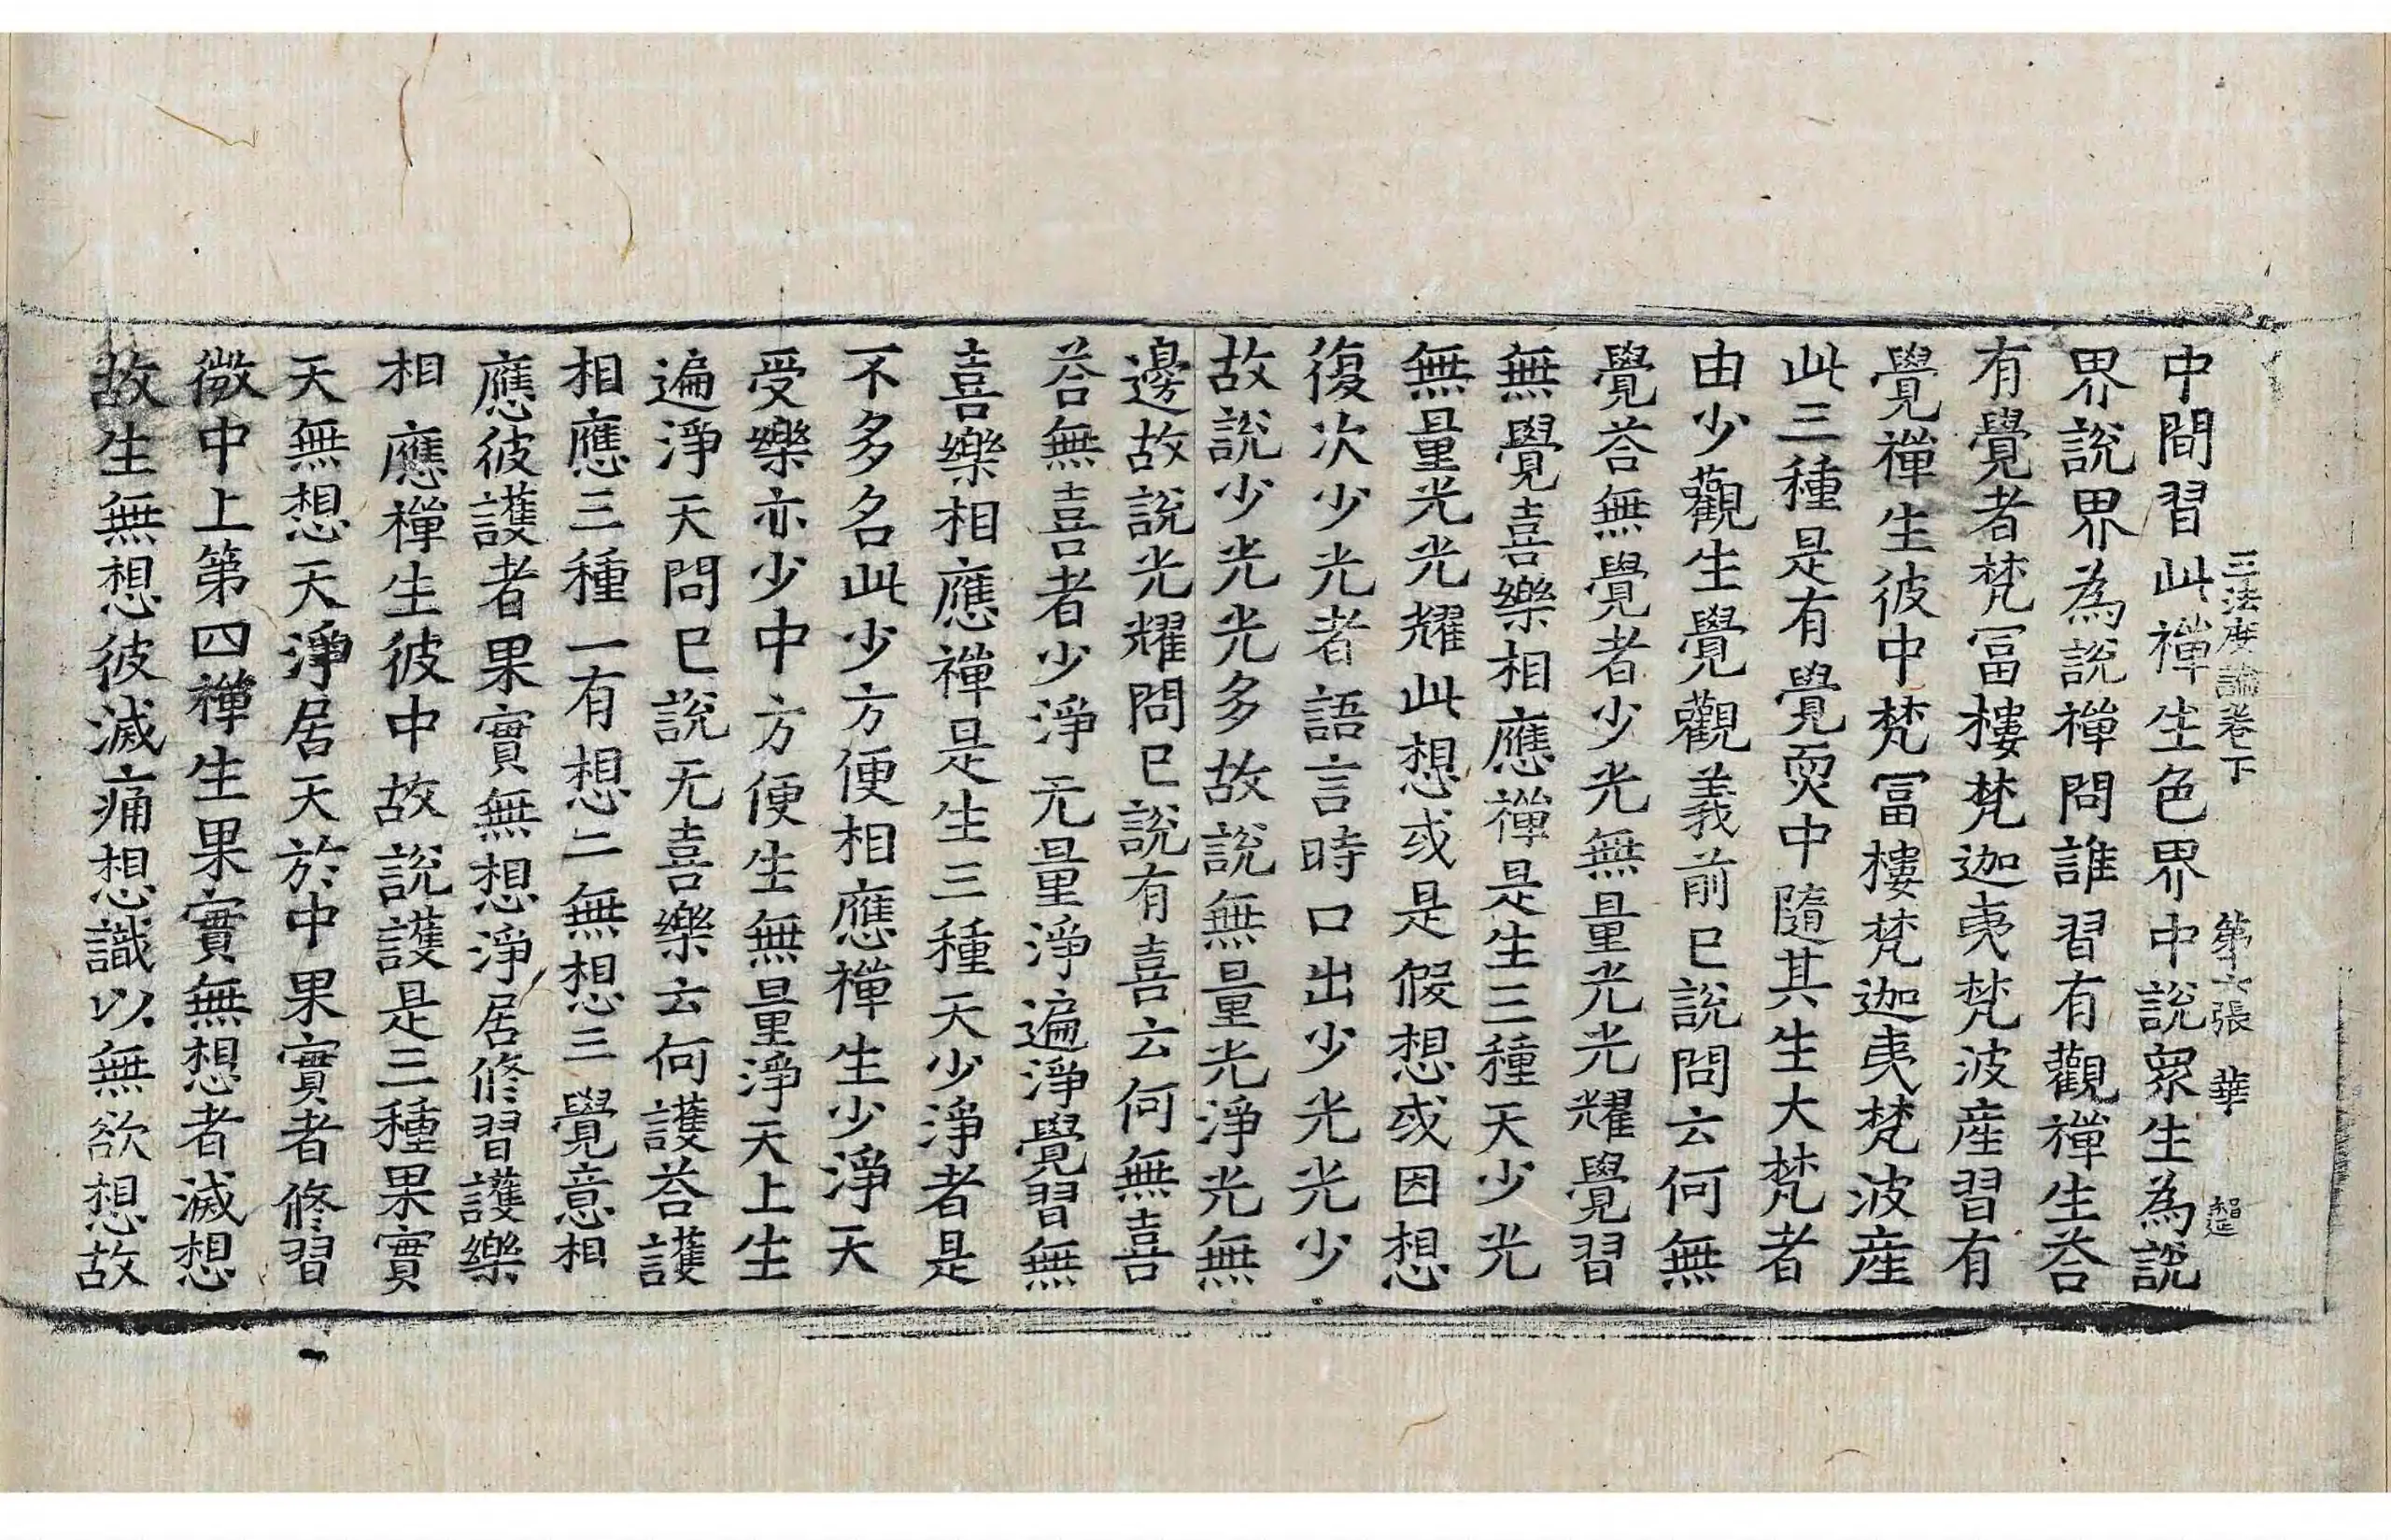 三法度論卷下 第六張 華
中間習此禪生色界中說衆生為說
界說界為說禪問誰習有觀禪生荅
有覺者梵冨樓梵迦夷梵波産習有
覺禪生彼中梵冨樓梵迦夷梵波産
此三種是有覺耎中隨其生大梵者
由少觀生覺觀義前已說問云何無
覺荅無覺者少光無量光光耀覺習
無覺喜樂相應禪是生三種天少光
無量光光耀此想或是假想或因想
復次少光者語言時口出少光光少
故說少光光多故說無量光淨光無
邊故說光耀問已說有喜云何無喜
荅無喜者少淨无量淨遍淨覺習無
喜樂相應禪是生三種天少淨者是
不多名此少方便相應禪生少淨天
受樂亦少中方便生無量淨天上生
遍淨天問已說无喜樂云何護荅護
相應三種一有想二無想三覺意相
應彼護者果實無想淨居修習護樂
相應禪生彼中故說護是三種果實
天無想天淨居天於中果實者修習
微中上第四禪生果實無想者滅想
故生無想彼滅痛想識以無欲想故